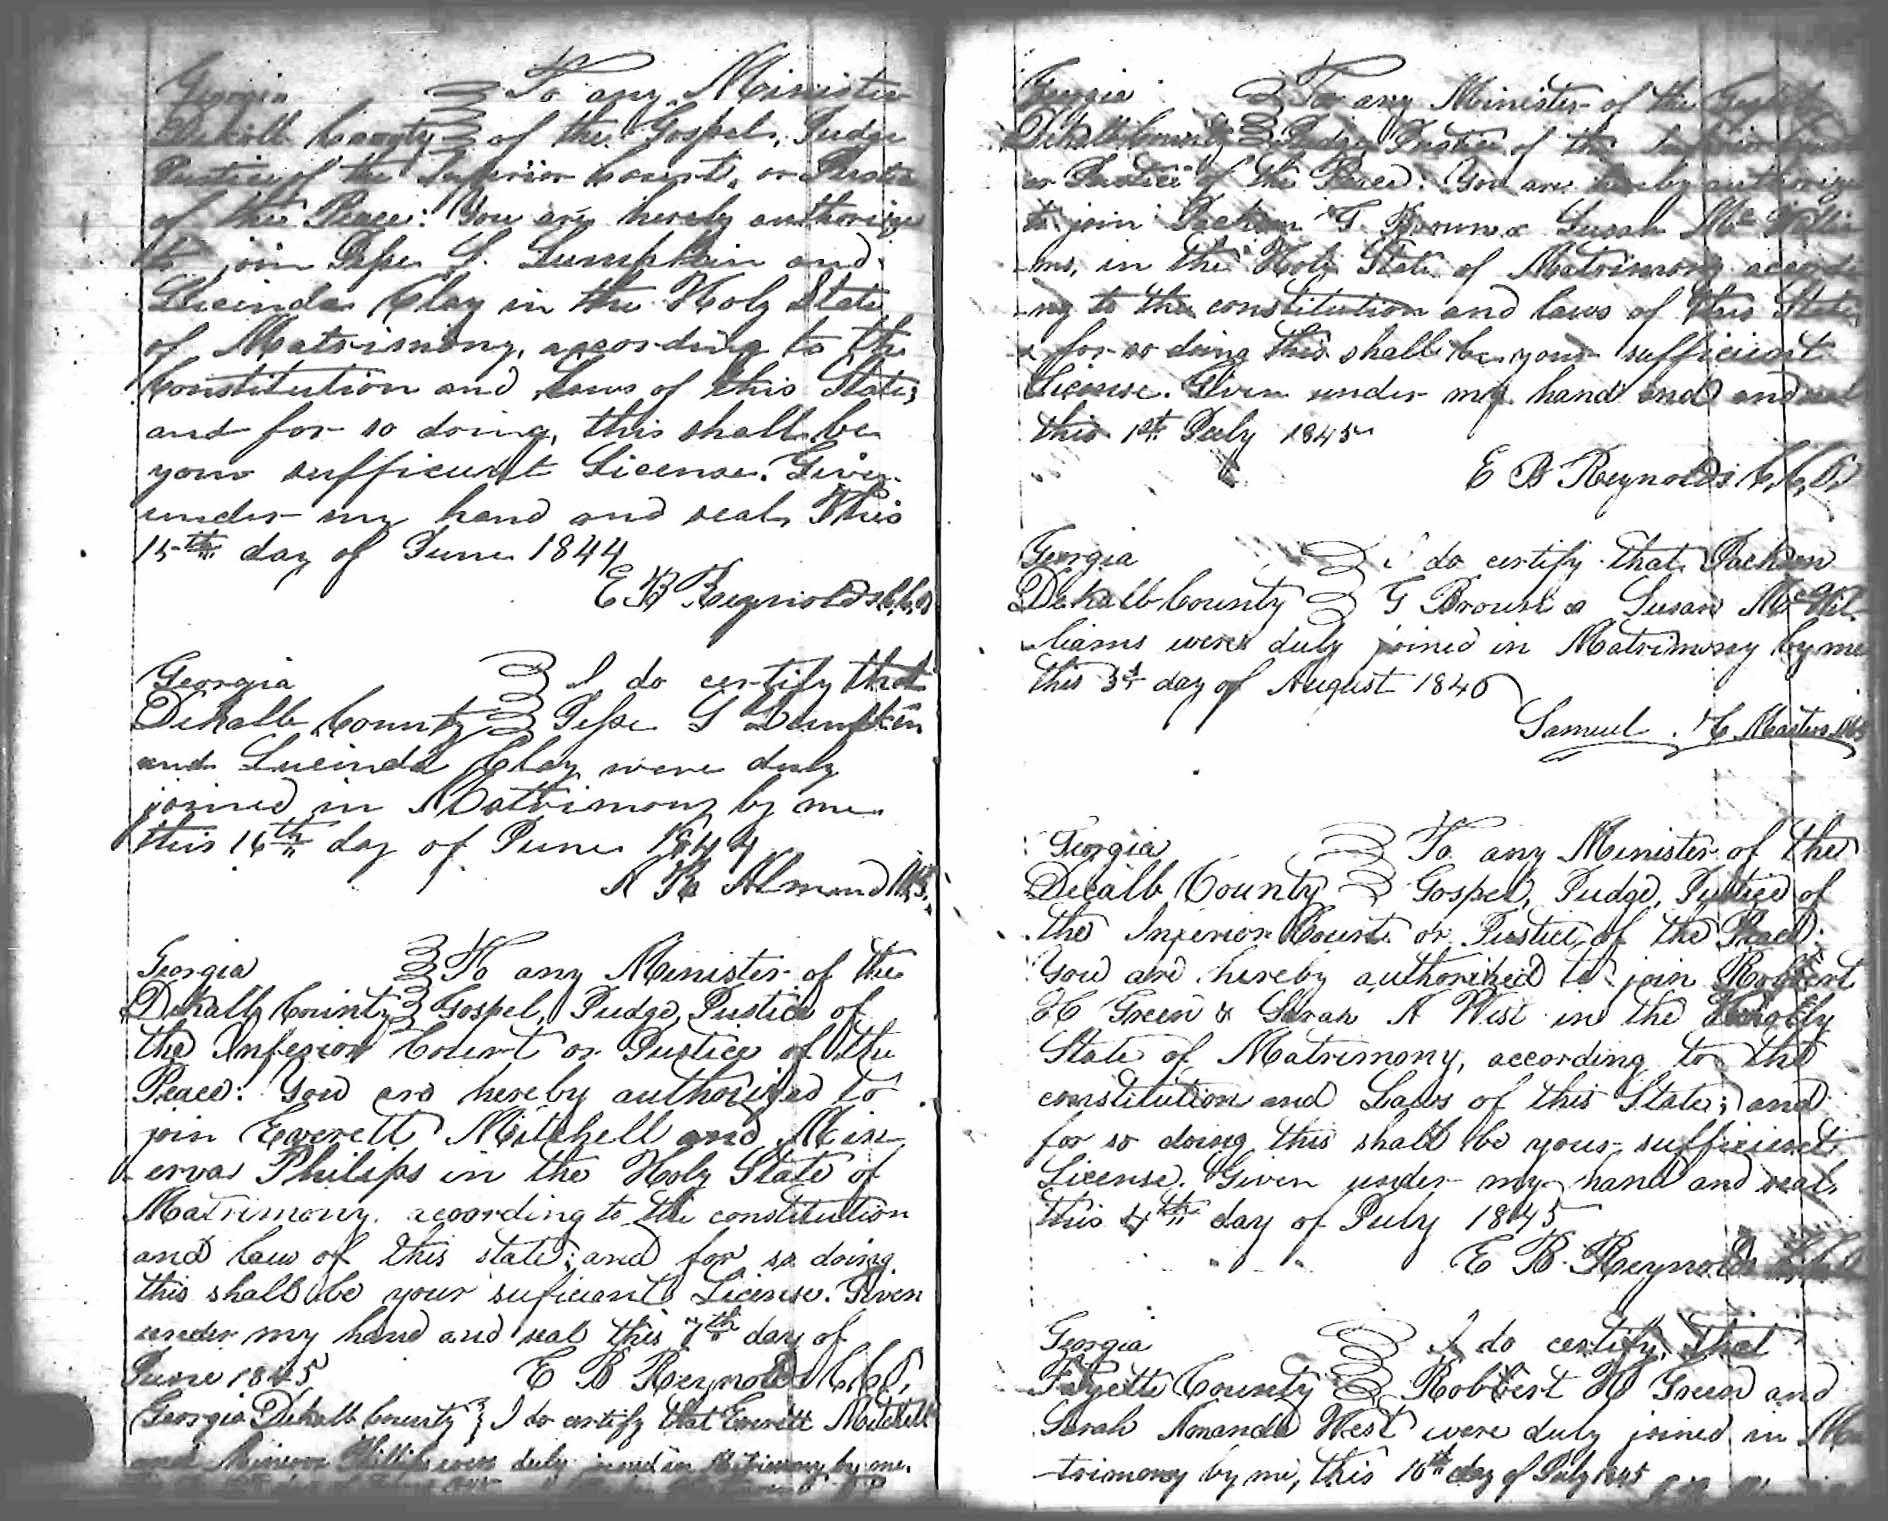 Georgia To any Minister
Dekalb County of the Gospel, Judge
Justice of the Inferior Court, or Justice
of the Peace: You are hereby authorize
to join Jesse S. Lumpkin and
Lucinda Clay in the Holy State
of Matrimony, according to the
Constitution and Laws of this State;
and for so doing, this shall be
your sufficient License. Given
under my hand and seal, This
15th day of June 1844
E B Reynolds C.C.O
Georgia I do certify that
Dekalb County Jesse S Lumpkin
and Lucinda Clay were duly
joined in Matrimony by me
this 16th day of June 1844
Almand
Georgia To any Minister of the
Dekalb County Gospel, Judge, Justice of
the Inferior Court or Justice of the
Peace: You are hereby authorized to
join Everett Mitchell and Min
erva Philips in the Holy State of
Matrimony, according to the constitution
and law of this state; and for so doing
this shall be your suficient License. Given
under my hand and seal this 7th day of
June 1845 E B Reynolds C.C.O.
Georgia Dekalb County I do certify that Everett Mitchell
and Minerva Phillips were duly joined in Matrimony by me
Georgia To any Minister of the Gospel
Dekalb County Judge Justice of the Inferior Court
or Justice of the Peace: You are hereby authorize
to join Jackson G. Brown & Susan McWillia
-ms, in the Holy State of Matrimony accordi
-ng to the constitution and laws of this State
& for so doing this shall be your sufficient
License. Given under my hand and and seal
this 1st July 1845
E B Reynolds C.C.O.
Georgia I do certify that Jackson
Dekalb County G Brown & Susan McWil-
liams were duly joined in Matrimony by me
this 3d day of August 1846
Samuel Masters
Georgia To any Minister of the
Decalb County Gospel, Judge, Justice of
the Inferior Court or Justice of the Peace:
You are hereby authorized to join Robbert
H Green & Sarah A West in the Holy
State of Matrimony, according to the
constitution and Laws of this State; and
for so doing this shall be your sufficient
License. Given under my hand and seal,
this 4th day of July 1845
E B Reynolds
Georgia I do certify, that
Fayette County Robbert H Green and
Sarah Amanda West were duly joined in Ma
-trimony by me, this 10th day of July 1845